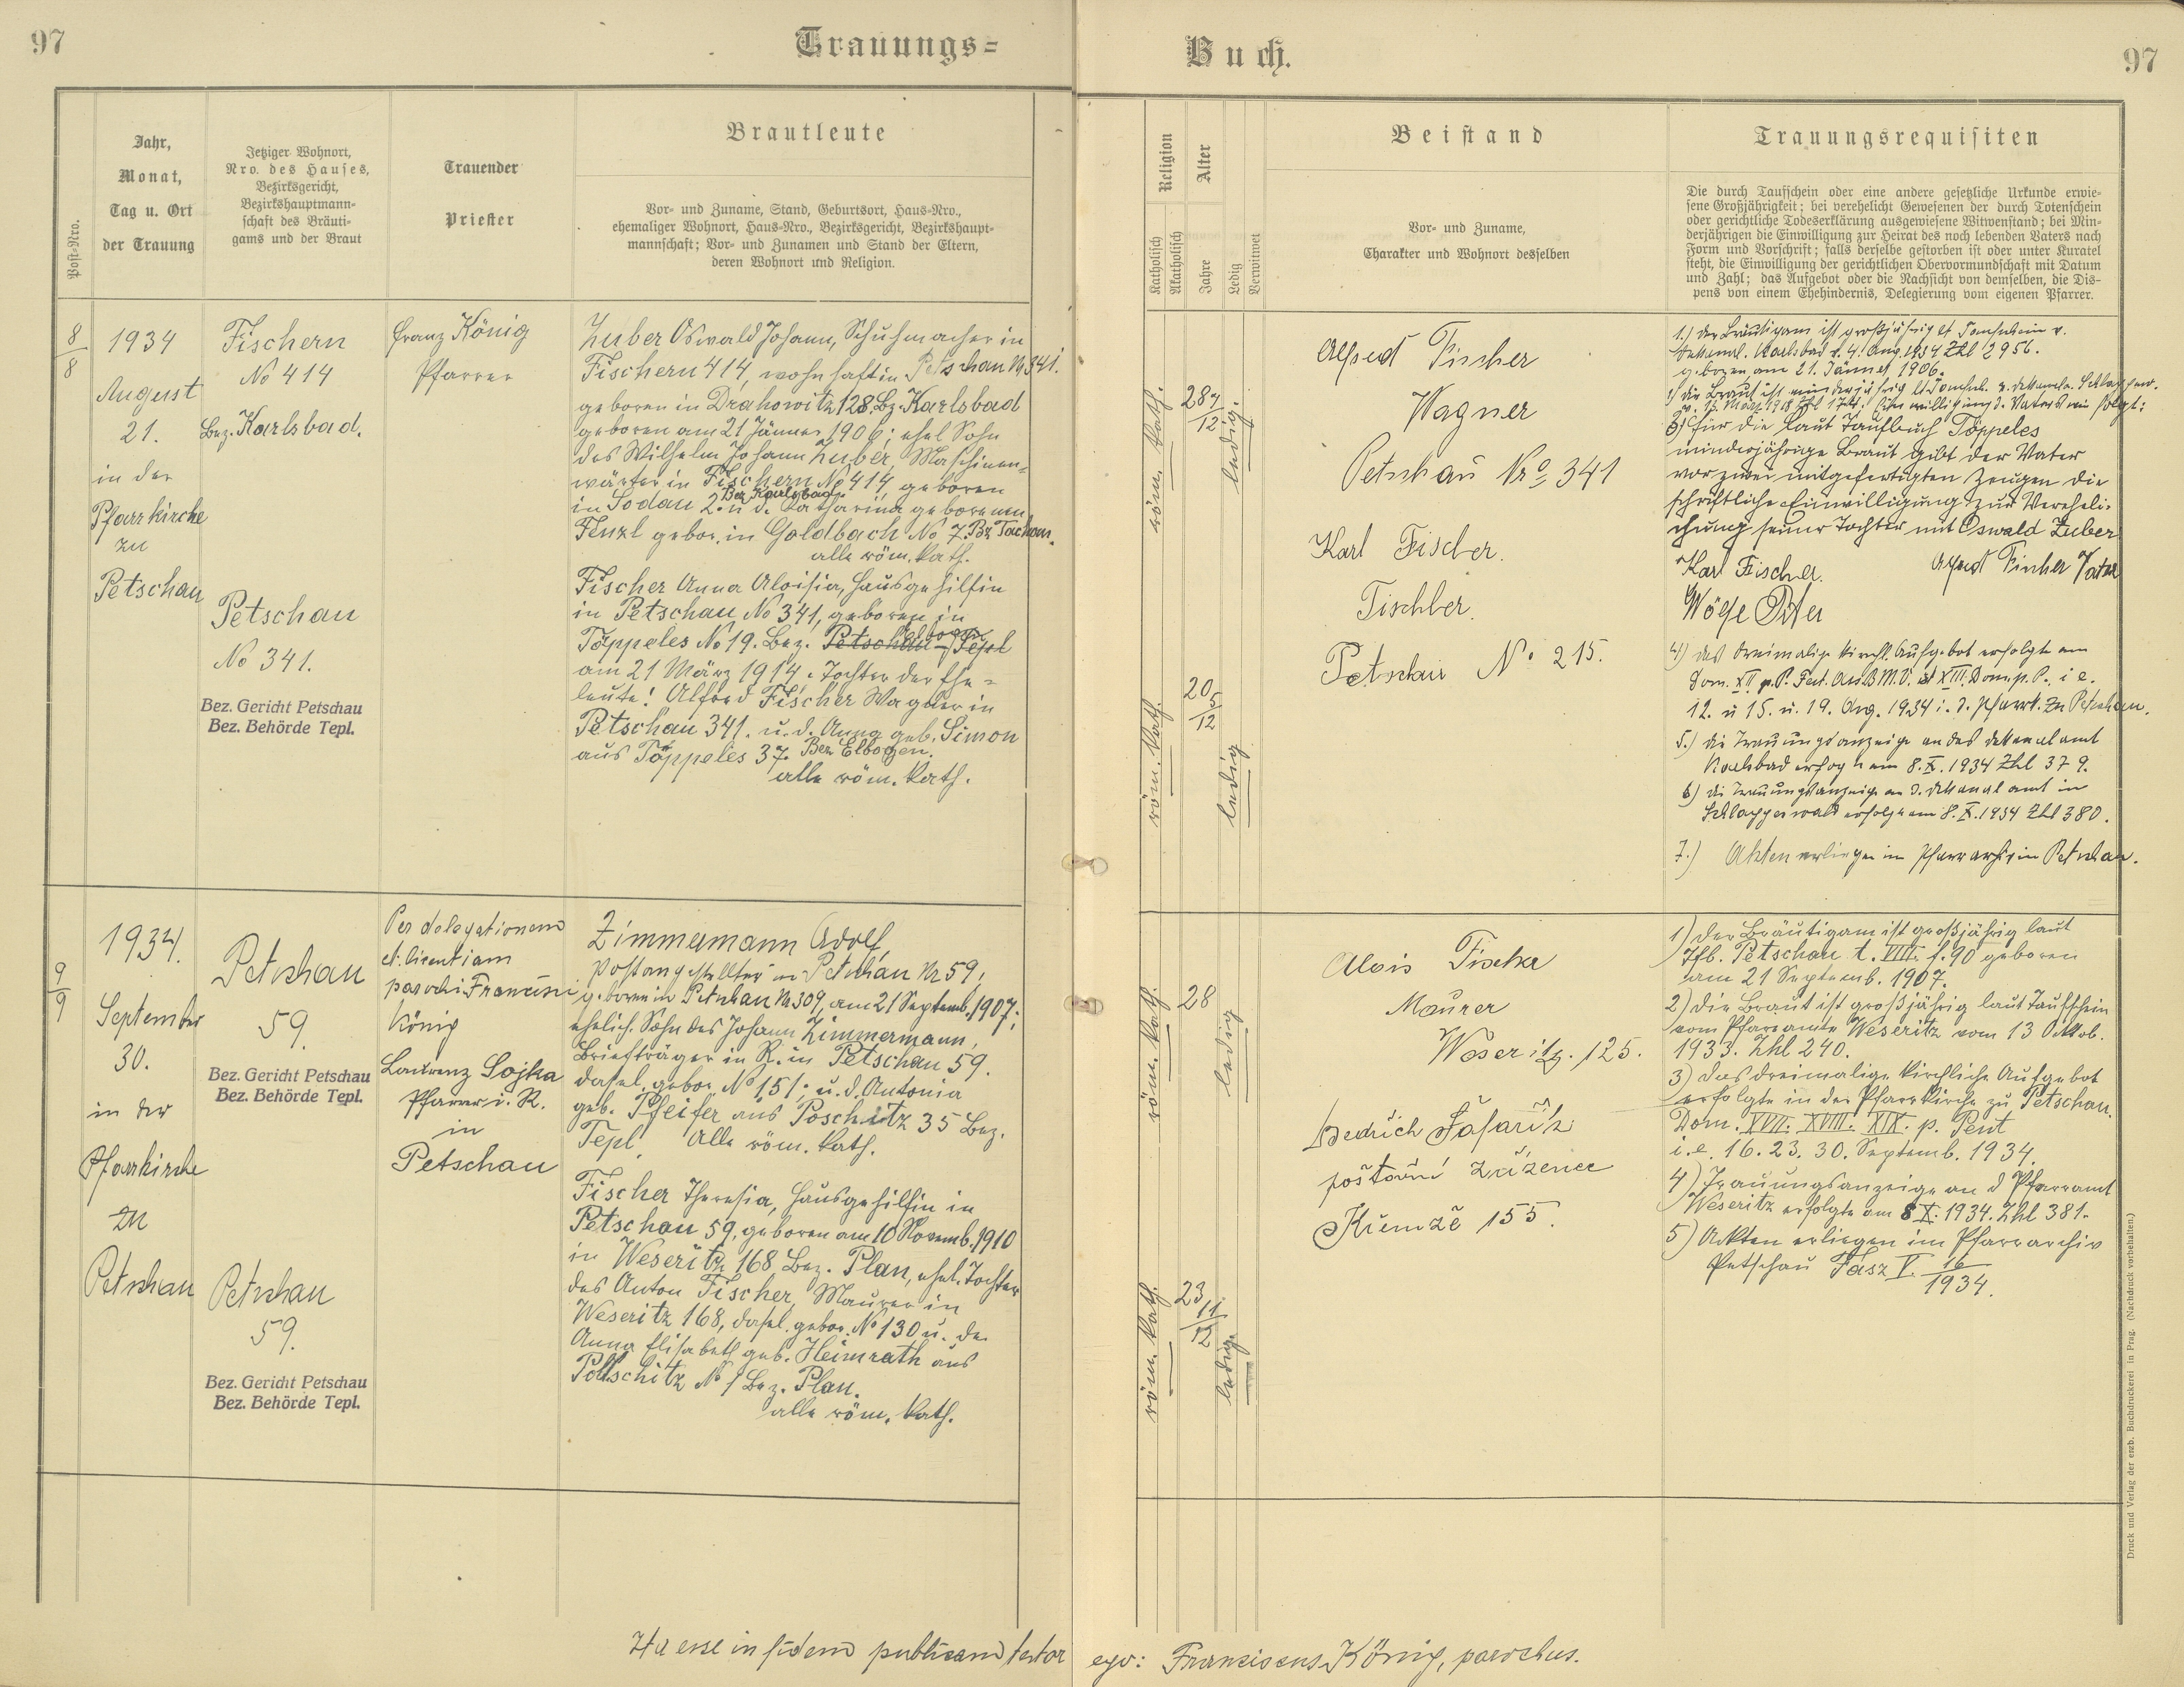 97
Trauungs=
Buch.
97
Post-Nro.
Jahr,
Monat,
Tag u. Ort
der Trauung
Jetziger Wohnort,
Nro. des Hauses,
Bezirksgericht,
Bezirkshauptmann-
schaft des Bräuti-
gams und der Braut
Trauender
Priester
Brautleute
Vor- und Zuname, Stand, Geburtsort, Haus-Nro.,
ehemaliger Wohnort, Haus-Nro., Bezirksgericht, Bezirkshaupt-
mannschaft; Vor- und Zunamen und Stand der Eltern,
deren Wohnort und Religion.
Religion
Katholisch
Akatholisch
Alter
Jahre
Ledig
Verwitwet
Beistand
Vor- und Zuname,
Charakter und Wohnort desselben
Trauungsrequisiten
Die durch Taufschein oder eine andere gesetzliche Urkunde erwie-
sene Großjährigkeit; bei verehelicht Gewesenen der durch Totenschein
oder gerichtliche Todeserklärung ausgewiesene Witwenstand; bei Min-
derjährigen die Einwilligung zur Heirat des noch lebenden Vaters nach
Form und Vorschrift; falls derselbe gestorben ist oder unter Kuratel
steht, die Einwilligung der gerichtlichen Obervormundschaft mit Datum
und Zahl; das Aufgebot oder die Nachsicht von demselben, die Dis-
pens von einem Ehehindernis, Delegierung vom eigenen Pfarrer.
8
8
1934
August
21.
in der
Pfarrkirche
zu
Petschau
Fischern
No 414
Bez. Karlsbad.
Petschau
No 341.
Bez. Gericht Petschau
Bez. Behörde Tepl.
Franz König
Pfarrer
Zuber Oswald Johann, Schuhmacher in
Fischern 414, wohnhaft in Petschau N 341.
geboren in Drahowitz 128, Bz. Karlsbad
geboren am 21 Jänner 1906; ehel Sohn
des Wilhelm Johann Zuber, Maschinen-
wärter in Fischern No 414 geboren
in Sodau 2. Bez Karlsbad u d. Katharina geborenen
Fenzl gebor. in Goldbach No 7. Bz Tachau.
alle röm. kath.
Fischer Anna Aloisia, Hausgehilfin
in Petschau No 341, geboren in
Töppeles No 19. Bez. Petschau - Tepl Elbogen
am 21 März 1914. Tochter der Ehe-
leute: Alfred Fischer Wagner in
Petschau 341. u. d. Anna geb. Simon
aus Töppeles 37. Bez Elbogen.
alle röm. kath.
röm. kath.
28 7/12
ledig.
röm. kath.
20 5/12
ledig
Alfred Fischer
Wagner
Petschau Nro 341
Karl Fischer.
Tischler.
Petschau No 215.
1.) der Bräutigam ist großjährig lt Taufschein v.
Dekanal. Karlsbad v. 4. Aug. 1934 Zhl 2956.
geboren am 21. Jänner 1906.
die Braut ist minderjährig
3) für die laut Taufbuch Töppeles
minderjährige Braut gibt der Vater
vor zwei mitgefertigten Zeugen die
schriftliche Einwilligung zur Vereheli-
chung seiner Tochter mit Oswald Zuber
Karl Fischer. Alfred Fischer Vater
4) das dreimalige kirchl. Aufgebot erfolgte am
Dom. XII p. P. Fest. Ass. B M. V. et XIII. Dom. p. P. i e.
12. u 15. u. 19. Aug. 1934 i. d. Pfarrk. zu Petschau.
5.) die Trauungsanzeige an das Dekanalamt
Karlsbad erfogte am 8. X. 1934 Zhl 379.
6) die Trauungsanzeige an d. Dekanalamt in
Schlaggenwald erfolgte am 8. X. 1934 Zhl 380.
7.) Akten erliegen im Pfarrarchiv in Petschau.
9
9
1934.
September
30.
in der
Pfarrkirche
zu
Petschau
Petschau
59.
Bez. Gericht Petschau
Bez. Behörde Tepl.
Petschau
59.
Bez. Gericht Petschau
Bez. Behörde Tepl.
Per delegationem
et licentiam
parochi Francisci
König
Laurenz Sojka
Pfarrer i. R.
in
Petschau
Zimmermann Adolf,
Postangestellter in Petschau Nr 59,
geboren in Petschau Nr 309, am 21 Septemb. 1907;
ehelich. Sohn des Johann Zimmermann,
Briefträger in R. in Petschau 59.
dasel. gebor No 151; u. d. Antonia
geb. Pfeifer aus Poschitz 35 Bez.
Tepl. Alle röm. kath.
Fischer Theresia, Hausgehilfin in
Petschau 59, geboren am 10 Novemb. 1910
in Weseritz 168 Bez. Plan, ehel. Tochter
des Anton Fischer, Maurer in
Weseritz 168, dasel. gebor. No 130 u. der
Anna Elisabeth geb. Heimrath aus
Pollschitz No 1 Bez. Plan.
alle röm. kath.
röm. kath.
28
ledig
röm. kath.
23 11/12
ledig.
Alois Fischer
Maurer
Weseritz. 125.
Bedřich Šafařík
poštovní zřízenec
Křemže 155.
1) Der Bräutigam ist großjährig laut
Tfb. Petschau t. VIII. f. 90 geboren
am 21 Septemb. 1907.
2) Die Braut ist großjährig laut Taufschein
vom Pfarramte Weseritz vom 13 Oktob.
1933. Zhl 240.
3) Das dreimalige kirchliche Aufgebot
erfolgte in der Pfarrkirche zu Petschau.
Dom. XVII. XVIII. XIX. p. Pent
i. e. 16. 23. 30. Septemb. 1934.
4) Trauungsanzeige an d Pfarramt
Weseritz erfolgte am 8 X. 1934. Zhl 381.
5) Akten erliegen im Pfarrarchiv
Petschau Fasz V. 16/1934.
Ita esse in fidem publicam testor ego: Franciscus König, parochus.
Druck und Verlag der erzb. Buchdruckerei in Prag. (Nachdruck vorbehalten.)